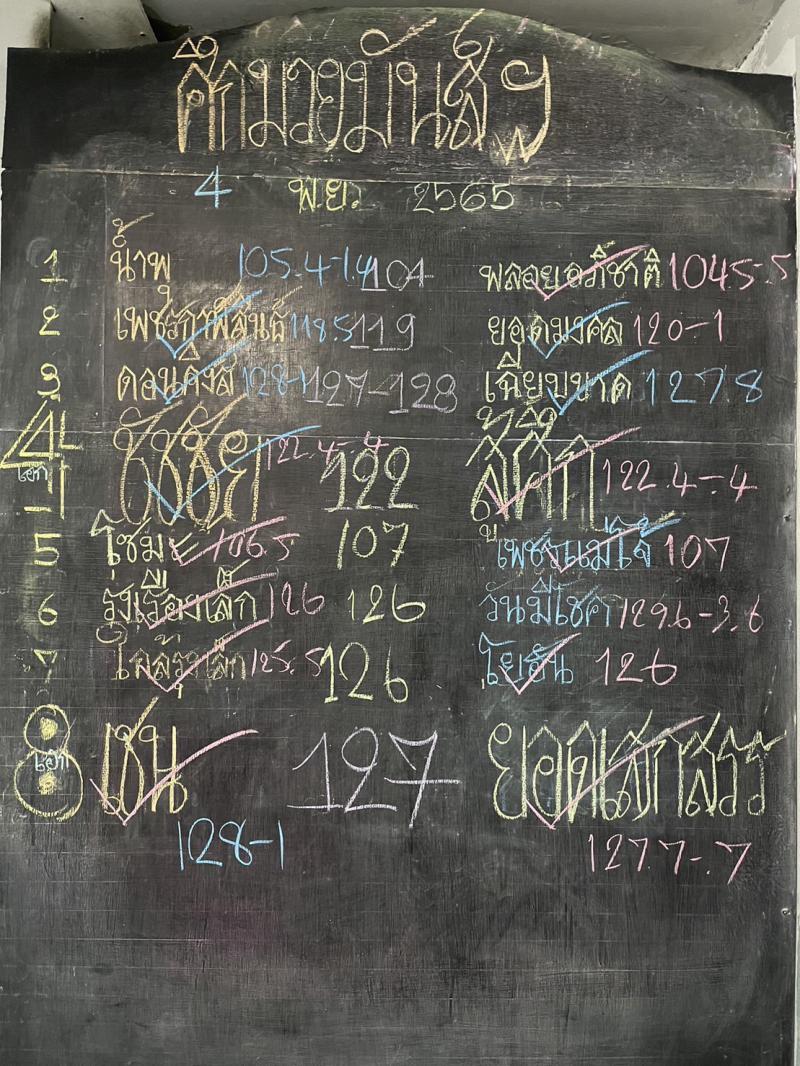 ศึกมวยมันส์ฯ
4 พ.ย. 2565
1 น้ำพุ 105.4-1.4 104 พลอยอภิชาติ 104.5-.5
2 เพชรภาพิสันธ์ 118.5 119 ยอดมงคล 120-1
3 ดอนคิงส์ 128-1 127-128 เฉียบขาด 127.8
4 เอก ชัชชัย 122.4-.4 122 สู้ศึก 122.4-.4
5 โชม 106.5 107 เพชรแม่โจ้ 107
6 รุ่งเรืองเล็ก 126 126 วันมีโชค 129.6-3.6
7 ใกล้รุ่งเล็ก 125.5 126 โยฮัน 126
8 เอก เซ่น 127 ยอดเสาสรร
128-1 127.7-.7